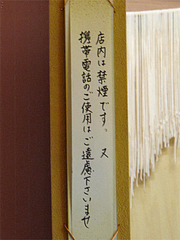 店内は禁煙です。又
携帯電話のご使用はご遠慮下さいませ